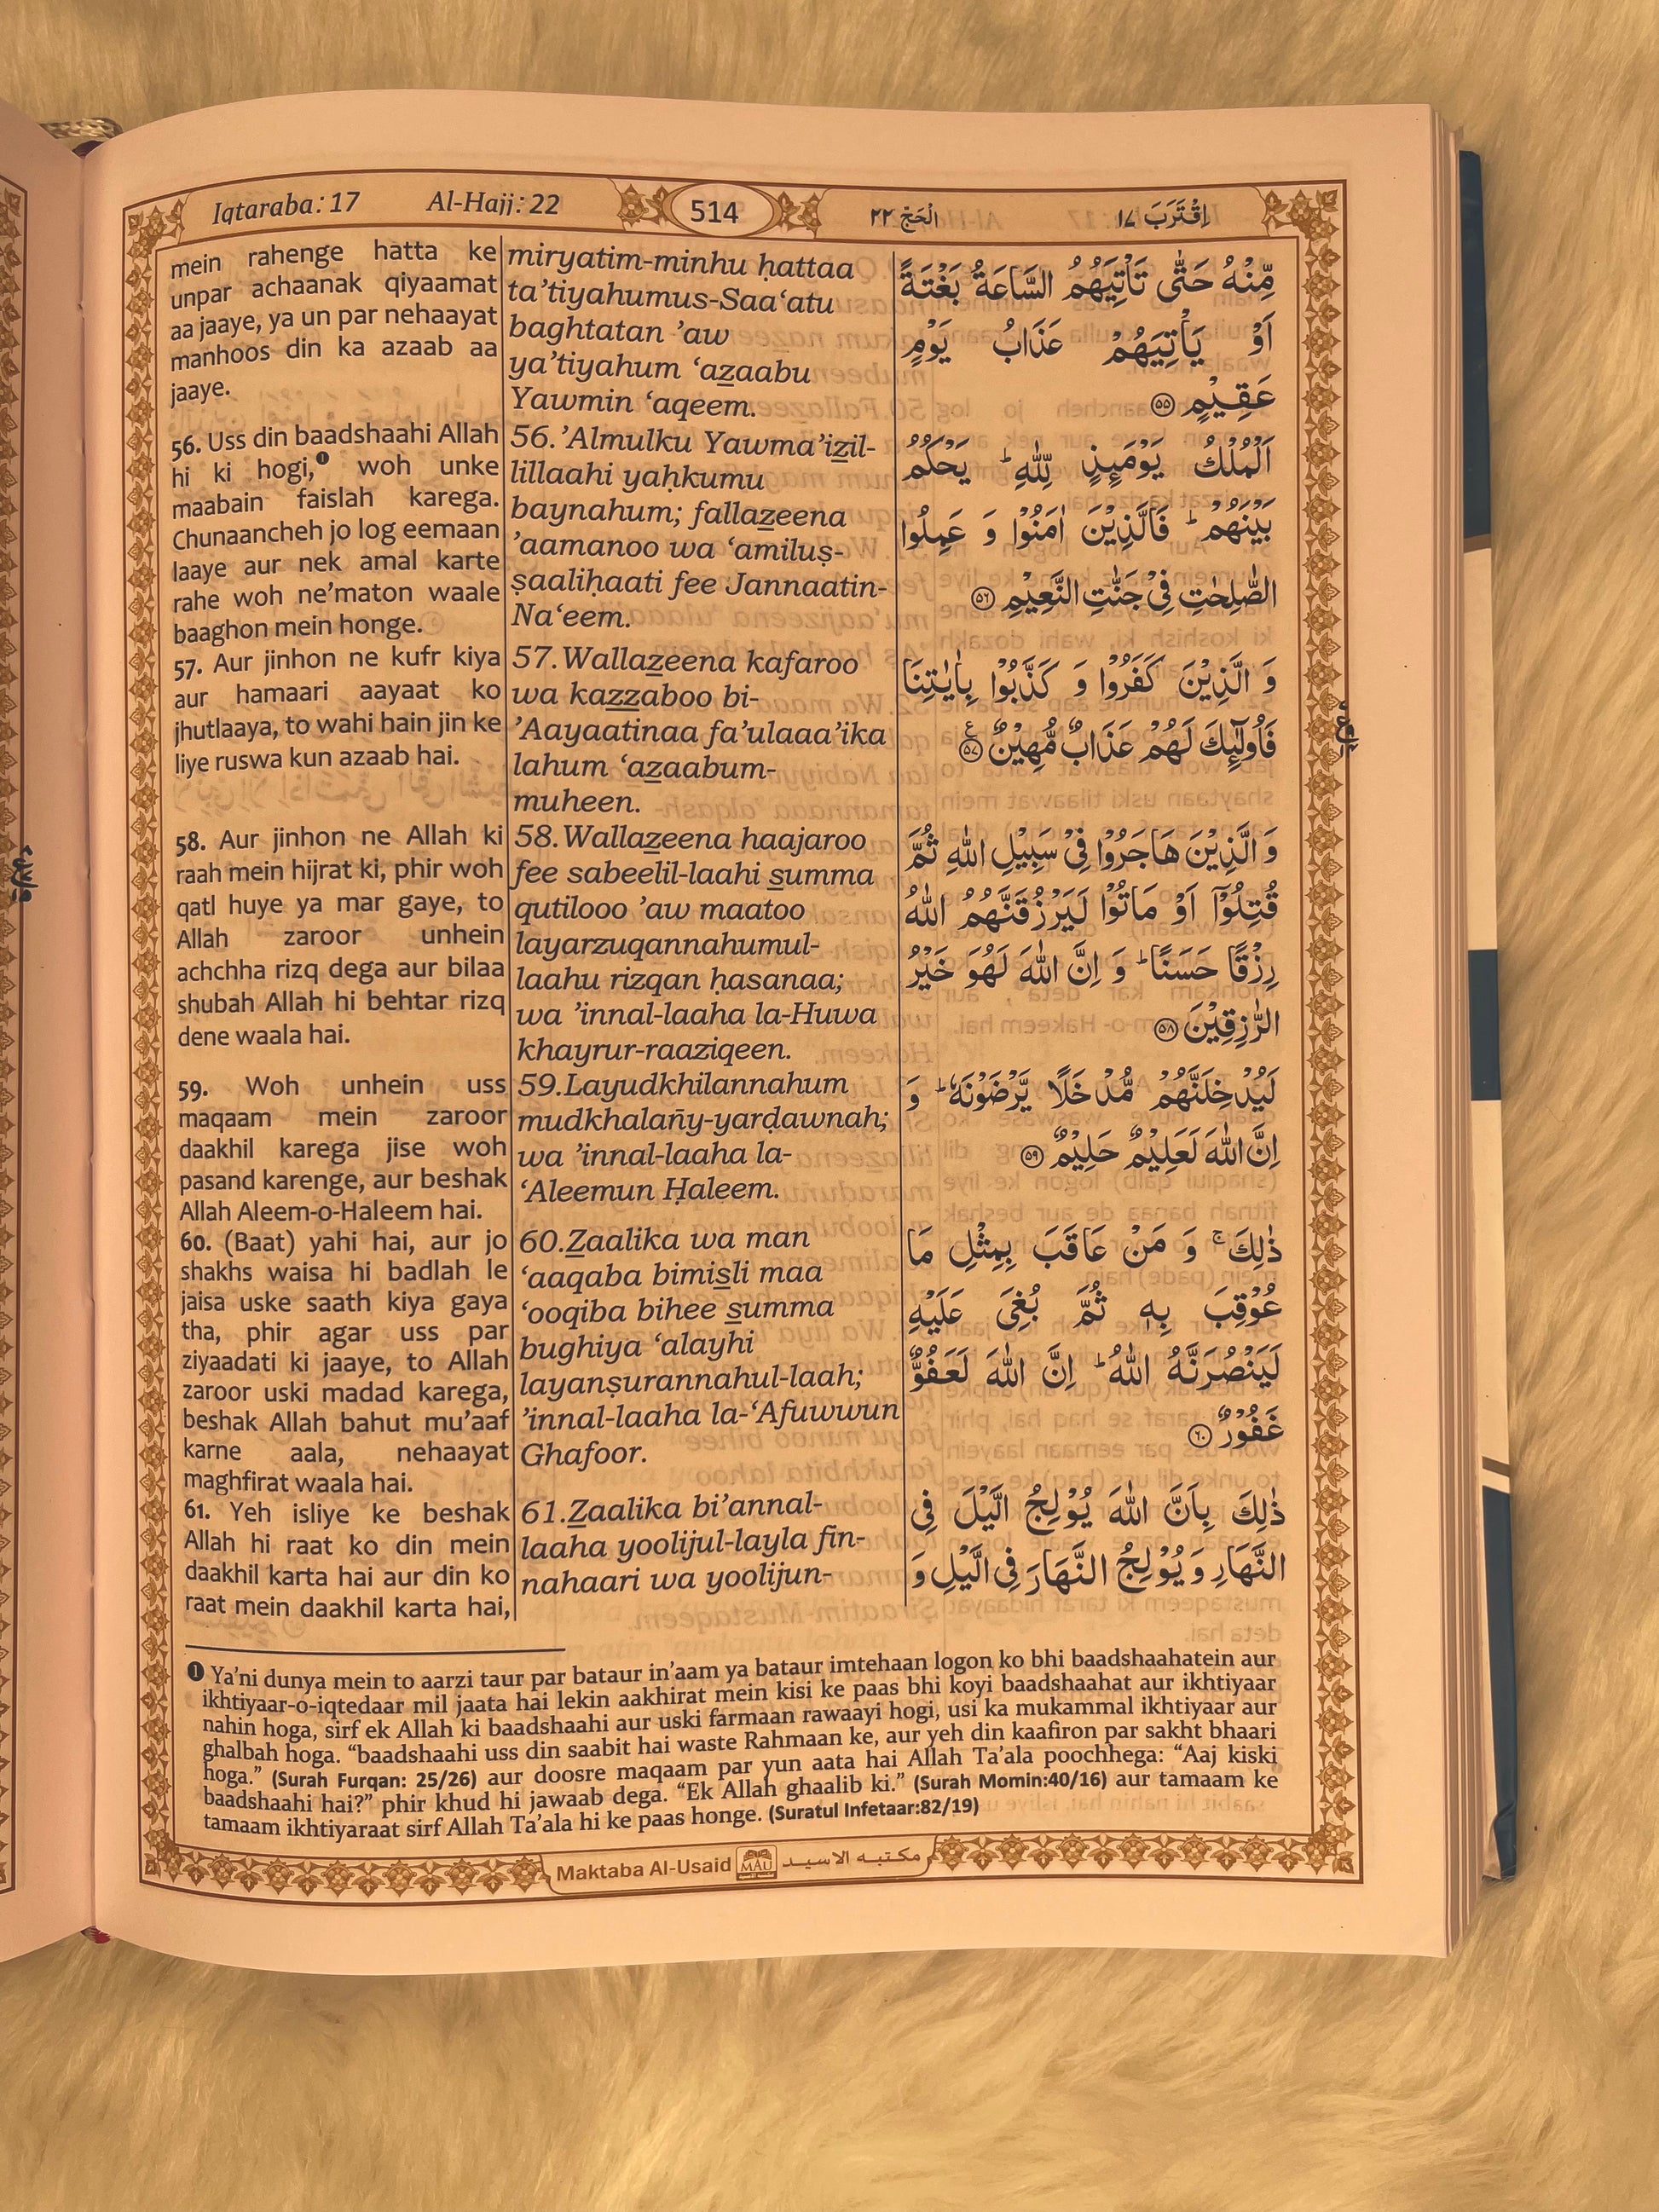 Iqtaraba: 17 Al-Hajj: 22 514 الْحَجّ ٢٢ اِقْتَرَبَ ١٧
mein rahenge hatta ke
unpar achaanak qiyaamat
aa jaaye, ya un par nehaayat
manhoos din ka azaab aa
jaaye.
56. Uss din baadshaahi Allah
hi ki hogi,❶ woh unke
maabain faislah karega.
Chunaancheh jo log eemaan
laaye aur nek amal karte
rahe woh ne’maton waale
baaghon mein honge.
57. Aur jinhon ne kufr kiya
aur hamaari aayaat ko
jhutlaaya, to wahi hain jin ke
liye ruswa kun azaab hai.
58. Aur jinhon ne Allah ki
raah mein hijrat ki, phir woh
qatl huye ya mar gaye, to
Allah zaroor unhein
achchha rizq dega aur bilaa
shubah Allah hi behtar rizq
dene waala hai.
59. Woh unhein uss
maqaam mein zaroor
daakhil karega jise woh
pasand karenge, aur beshak
Allah Aleem-o-Haleem hai.
60. (Baat) yahi hai, aur jo
shakhs waisa hi badlah le
jaisa uske saath kiya gaya
tha, phir agar uss par
ziyaadati ki jaaye, to Allah
zaroor uski madad karega,
beshak Allah bahut mu’aaf
karne aala, nehaayat
maghfirat waala hai.
61. Yeh isliye ke beshak
Allah hi raat ko din mein
daakhil karta hai aur din ko
raat mein daakhil karta hai,
miryatim-minhu ḥattaa
ta’tiyahumus-Saa‘atu
baghtatan ’aw
ya’tiyahum ‘azaabu
Yawmin ‘aqeem.
56.’Almulku Yawma’izil-
lillaahi yaḥkumu
baynahum; fallazeena
’aamanoo wa ‘amiluṣ-
ṣaaliḥaati fee Jannaatin-
Na‘eem.
57.Wallazeena kafaroo
wa kazzaboo bi-
’Aayaatinaa fa’ulaaa’ika
lahum ‘azaabum-
muheen.
58.Wallazeena haajaroo
fee sabeelil-laahi summa
qutilooo ’aw maatoo
layarzuqannahumul-
laahu rizqan ḥasanaa;
wa ’innal-laaha la-Huwa
khayrur-raaziqeen.
59.Layudkhilannahum
mudkhalañy-yarḍawnah;
wa ’innal-laaha la-
‘Aleemun Ḥaleem.
60.Zaalika wa man
‘aaqaba bimisli maa
‘ooqiba bihee summa
bughiya ‘alayhi
layanṣurannahul-laah;
’innal-laaha la-‘Afuwwun
Ghafoor.
61.Zaalika bi’annal-
laaha yoolijul-layla fin-
nahaari wa yoolijun-
مِّنْهُ حَتّٰى تَاْتِيَهُمُ السَّاعَةُ بَغْتَةً
اَوْ يَاْتِيَهُمْ عَذَابُ يَوْمٍ
عَقِيْمٍ ۝٥٥
اَلْمُلْكُ يَوْمَىِٕذٍ لِّلّٰهِ ؕ يَحْكُمُ
بَيْنَهُمْ ؕ فَالَّذِيْنَ اٰمَنُوْا وَ عَمِلُوا
الصّٰلِحٰتِ فِيْ جَنّٰتِ النَّعِيْمِ ۝٥٦
وَ الَّذِيْنَ كَفَرُوْا وَ كَذَّبُوْا بِاٰيٰتِنَا
فَاُولٰٓىِٕكَ لَهُمْ عَذَابٌ مُّهِيْنٌ ۝٥٧
وَ الَّذِيْنَ هَاجَرُوْا فِيْ سَبِيْلِ اللّٰهِ ثُمَّ
قُتِلُوْۤا اَوْ مَاتُوْا لَيَرْزُقَنَّهُمُ اللّٰهُ
رِزْقًا حَسَنًا ؕ وَ اِنَّ اللّٰهَ لَهُوَ خَيْرُ
الرّٰزِقِيْنَ ۝٥٨
لَيُدْخِلَنَّهُمْ مُّدْخَلًا يَّرْضَوْنَهٗ ؕ وَ
اِنَّ اللّٰهَ لَعَلِيْمٌ حَلِيْمٌ ۝٥٩
ذٰلِكَ ۚ وَ مَنْ عَاقَبَ بِمِثْلِ مَا
عُوْقِبَ بِهٖ ثُمَّ بُغِيَ عَلَيْهِ
لَيَنْصُرَنَّهُ اللّٰهُ ؕ اِنَّ اللّٰهَ لَعَفُوٌّ
غَفُوْرٌ ۝٦٠
ذٰلِكَ بِاَنَّ اللّٰهَ يُوْلِجُ الَّيْلَ فِي
النَّهَارِ وَ يُوْلِجُ النَّهَارَ فِي الَّيْلِ وَ
❶ Ya’ni dunya mein to aarzi taur par bataur in’aam ya bataur imtehaan logon ko bhi baadshaahatein aur
ikhtiyaar-o-iqtedaar mil jaata hai lekin aakhirat mein kisi ke paas bhi koyi baadshaahat aur ikhtiyaar
nahin hoga, sirf ek Allah ki baadshaahi aur uski farmaan rawaayi hogi, usi ka mukammal ikhtiyaar aur
ghalbah hoga. “baadshaahi uss din saabit hai waste Rahmaan ke, aur yeh din kaafiron par sakht bhaari
hoga.” (Surah Furqan: 25/26) aur doosre maqaam par yun aata hai Allah Ta’ala poochhega: “Aaj kiski
baadshaahi hai?” phir khud hi jawaab dega. “Ek Allah ghaalib ki.” (Surah Momin:40/16) aur tamaam ke
tamaam ikhtiyaraat sirf Allah Ta’ala hi ke paas honge. (Suratul Infetaar:82/19)
Maktaba Al-Usaid MAU مكتبه الاسيد